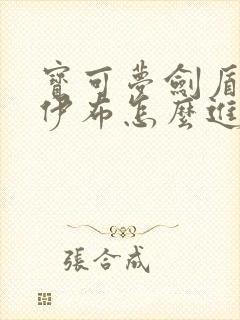 寶可夢劍盾
伊布怎麼進
張合成